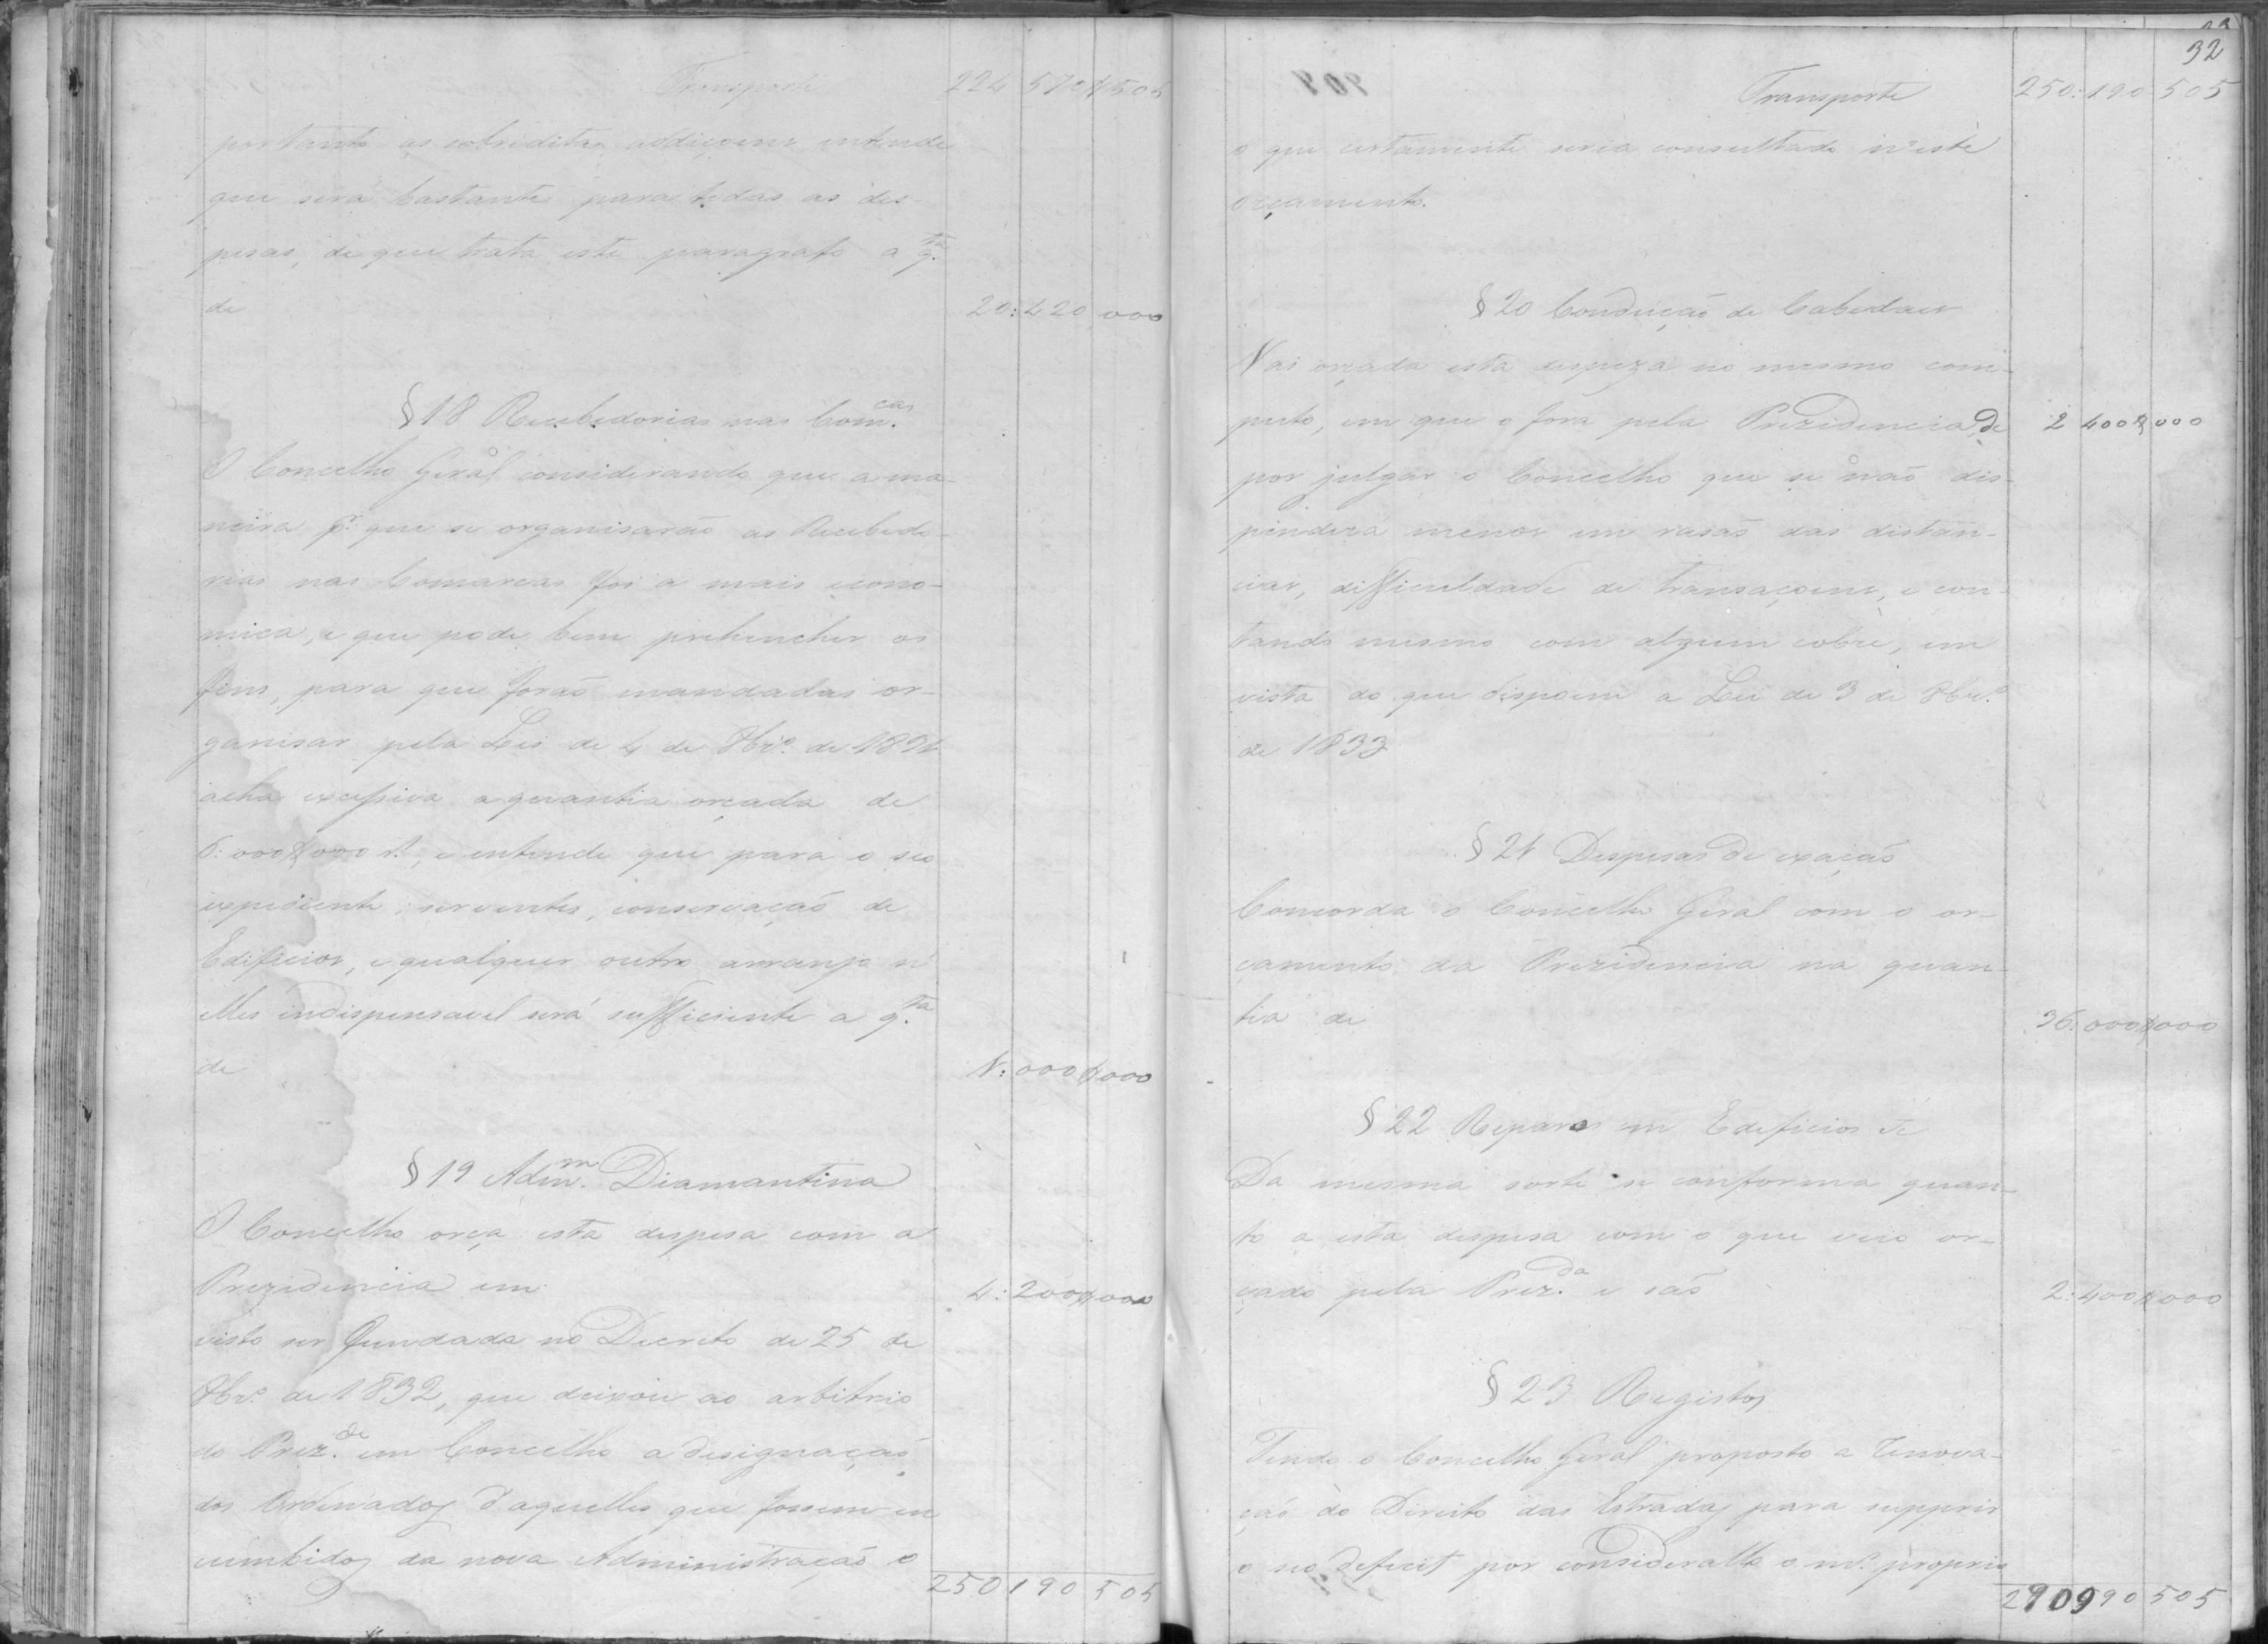 Transporte 224 570$505
portanto as sobreditas addiçoens entende
que será bastante para todas as des-
pesas, de que trata este paragrafo a q.ta
de 20:420,000
§ 18 Recebedorias nas Com.cas
O Concelho Geral considerando que a ma-
neira p.r que se organisarão as Recebedo-
rias nas Comarcas foi a mais econo-
mica, e que pode bem prehencher os
fins, para que forão mandadas or-
ganisar pela Lei de 4 de 8br.o de 1831
acha excessiva a quantia orçada de
6:000$000 r.s, e entende que para o seo
expediente, serventes, conservação de
Edificios, e qualquer outro arranjo n'
elles indispensavel será sufficiente a q.ta
de 1:000$000
§ 19 Adm.m Diamantina
O Concelho orça esta despesa com a
Prezidencia em 4:200$000
visto ser fundada no Decreto de 25 de
8br.o de 1832, que deixou ao arbitrio
do Prez.de em Concelho a designação
dos Ordenados d'aquelles que fossem en
cumbidos da nova Administração o
250 190 505
32
Transporte 250:190 505
o que certamente seria consultado n'este
orçamento.
§ 20 Condução de Cabedaes
Vai orçada esta despeza no mesmo com-
puto, em que o fora pela Prezidencia, de 2 400$000
por julgar o Concelho que se não dis-
penderá menos em rasão das distan-
cias, difficuldade de transaçoens, e con-
tando mesmo com algum cobre, em
vista do que dispoem a Lei de 3 de 8br.o
de 1833
§ 21 Despesas de exação
Concorda o Concelho Geral com o or-
çamento da Prezidencia na quan-
tia de 36:000$000
§ 22 Reparos em Edificios &
Da mesma sorte se conforma quan-
to a esta despesa com o que veio or-
çado pela Prez.da e são 2:400$000
§ 23 Registos
Tendo o Concelho Geral proposto a renova-
ção do Direito das Estradas para supprir
o seo deficit por consideral-o o m.o proprio
290990 505